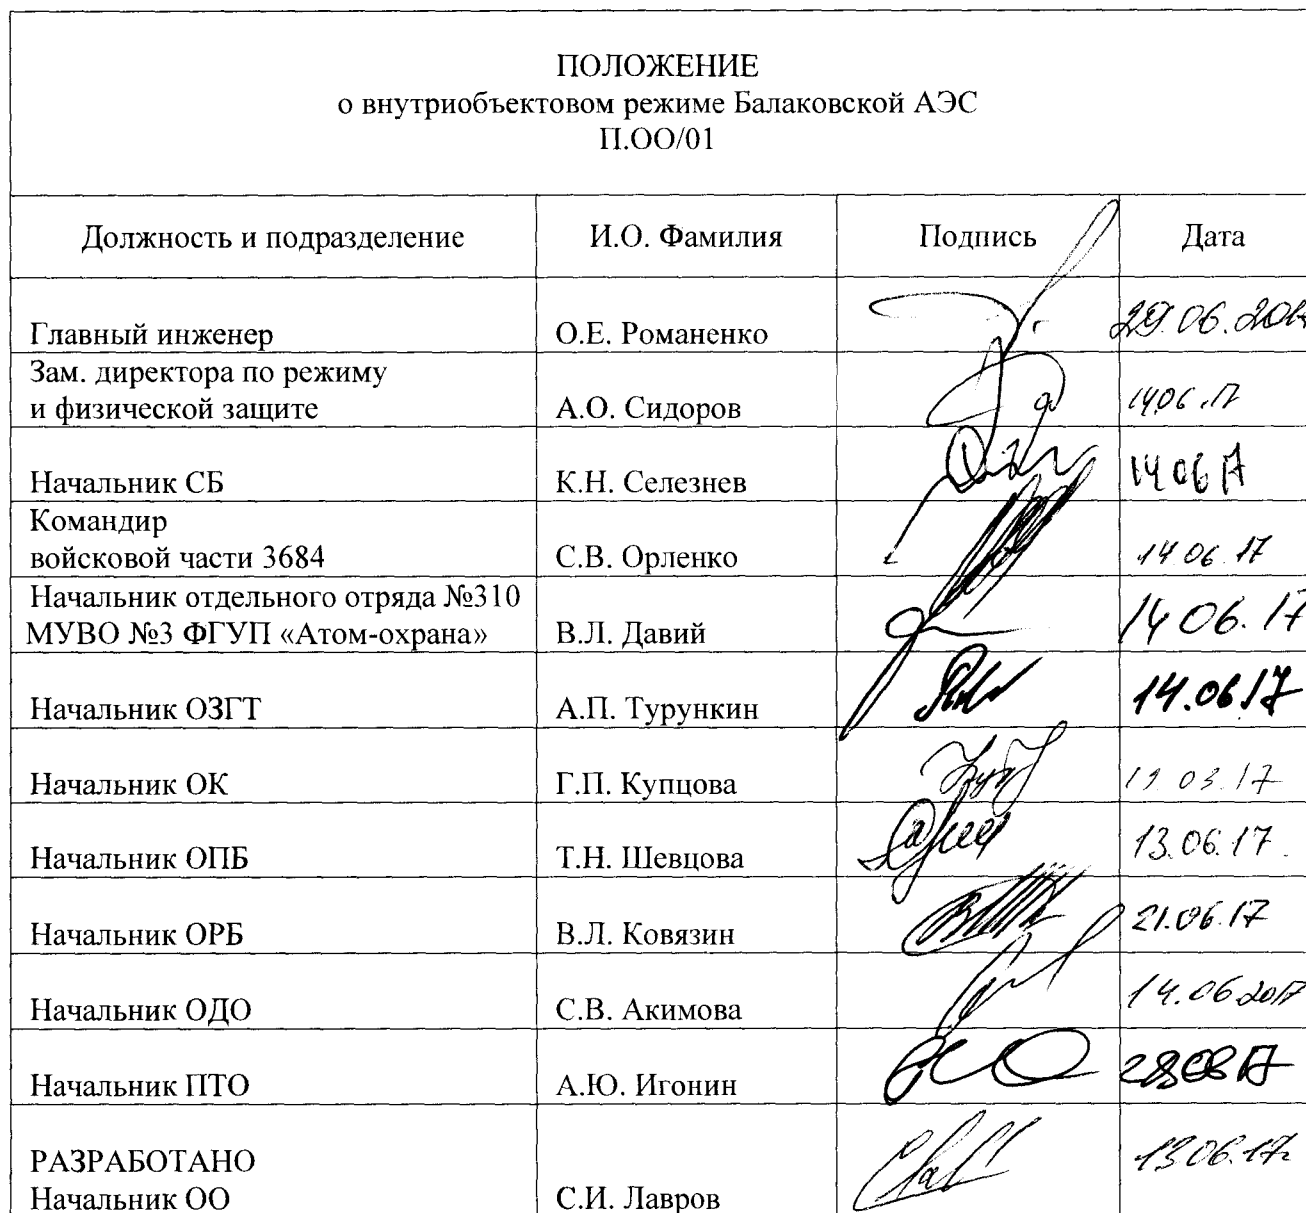 ПОЛОЖЕНИЕ
о внутриобъектовом режиме Балаковской АЭС
П.ОО/01
Должность и подразделение И.О. Фамилия Подпись Дата
Главный инженер О.Е. Романенко 29.06.2017
Зам. директора по режиму
и физической защите А.О. Сидоров 14.06.17
Начальник СБ К.Н. Селезнев 14 06 17
Командир
войсковой части 3684 С.В. Орленко 14 06 17
Начальник отдельного отряда №310
МУВО №3 ФГУП «Атом-охрана» В.Л. Давий 14 06.17
Начальник ОЗГТ А.П. Турункин 14.06 17
Начальник ОК Г.П. Купцова
Начальник ОПБ Т.Н. Шевцова 13.06.17
Начальник ОРБ В.Л. Ковязин 21.06.17
Начальник ОДО С.В. Акимова 14.06 2017
Начальник ПТО А.Ю. Игонин
РАЗРАБОТАНО
Начальник ОО С.И. Лавров 13 06.17